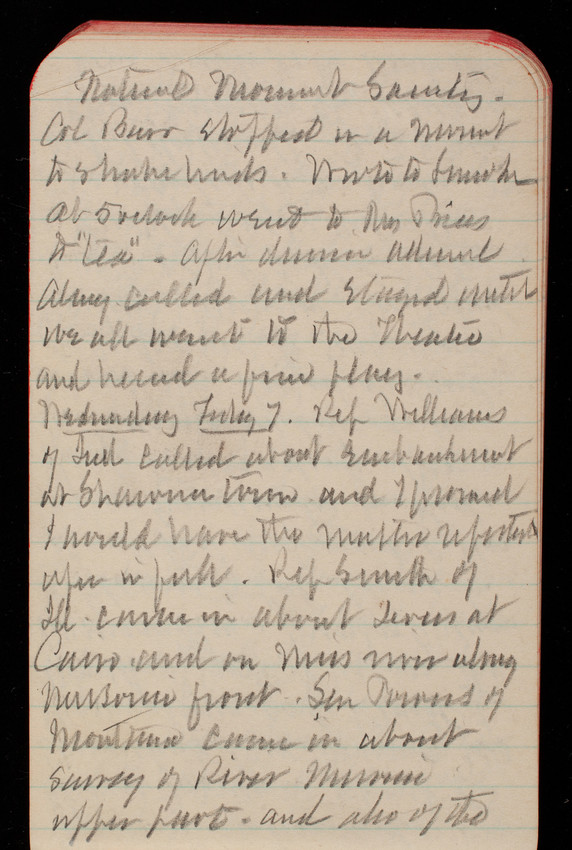 National Monument Society.
Col Barr stopped in a moment
to shake hands. Wrote to
At 5 o'clock went to Mrs Prices
to "tea". After dinner Admiral
Almy called and stayed until
we all went to the Theatre
and heard a fine play.
Wednesday Feby 7. Rep Williams
of Ill called about Embankment
at Shawneetown and I promised
I would have the matter reported
upon in full. Rep Smith of
Ill. came in about levees at
Cairo and on Miss river along
Missouri front. Sen Powers of
Montana came in about
survey of River Missouri
upper part. and also of the